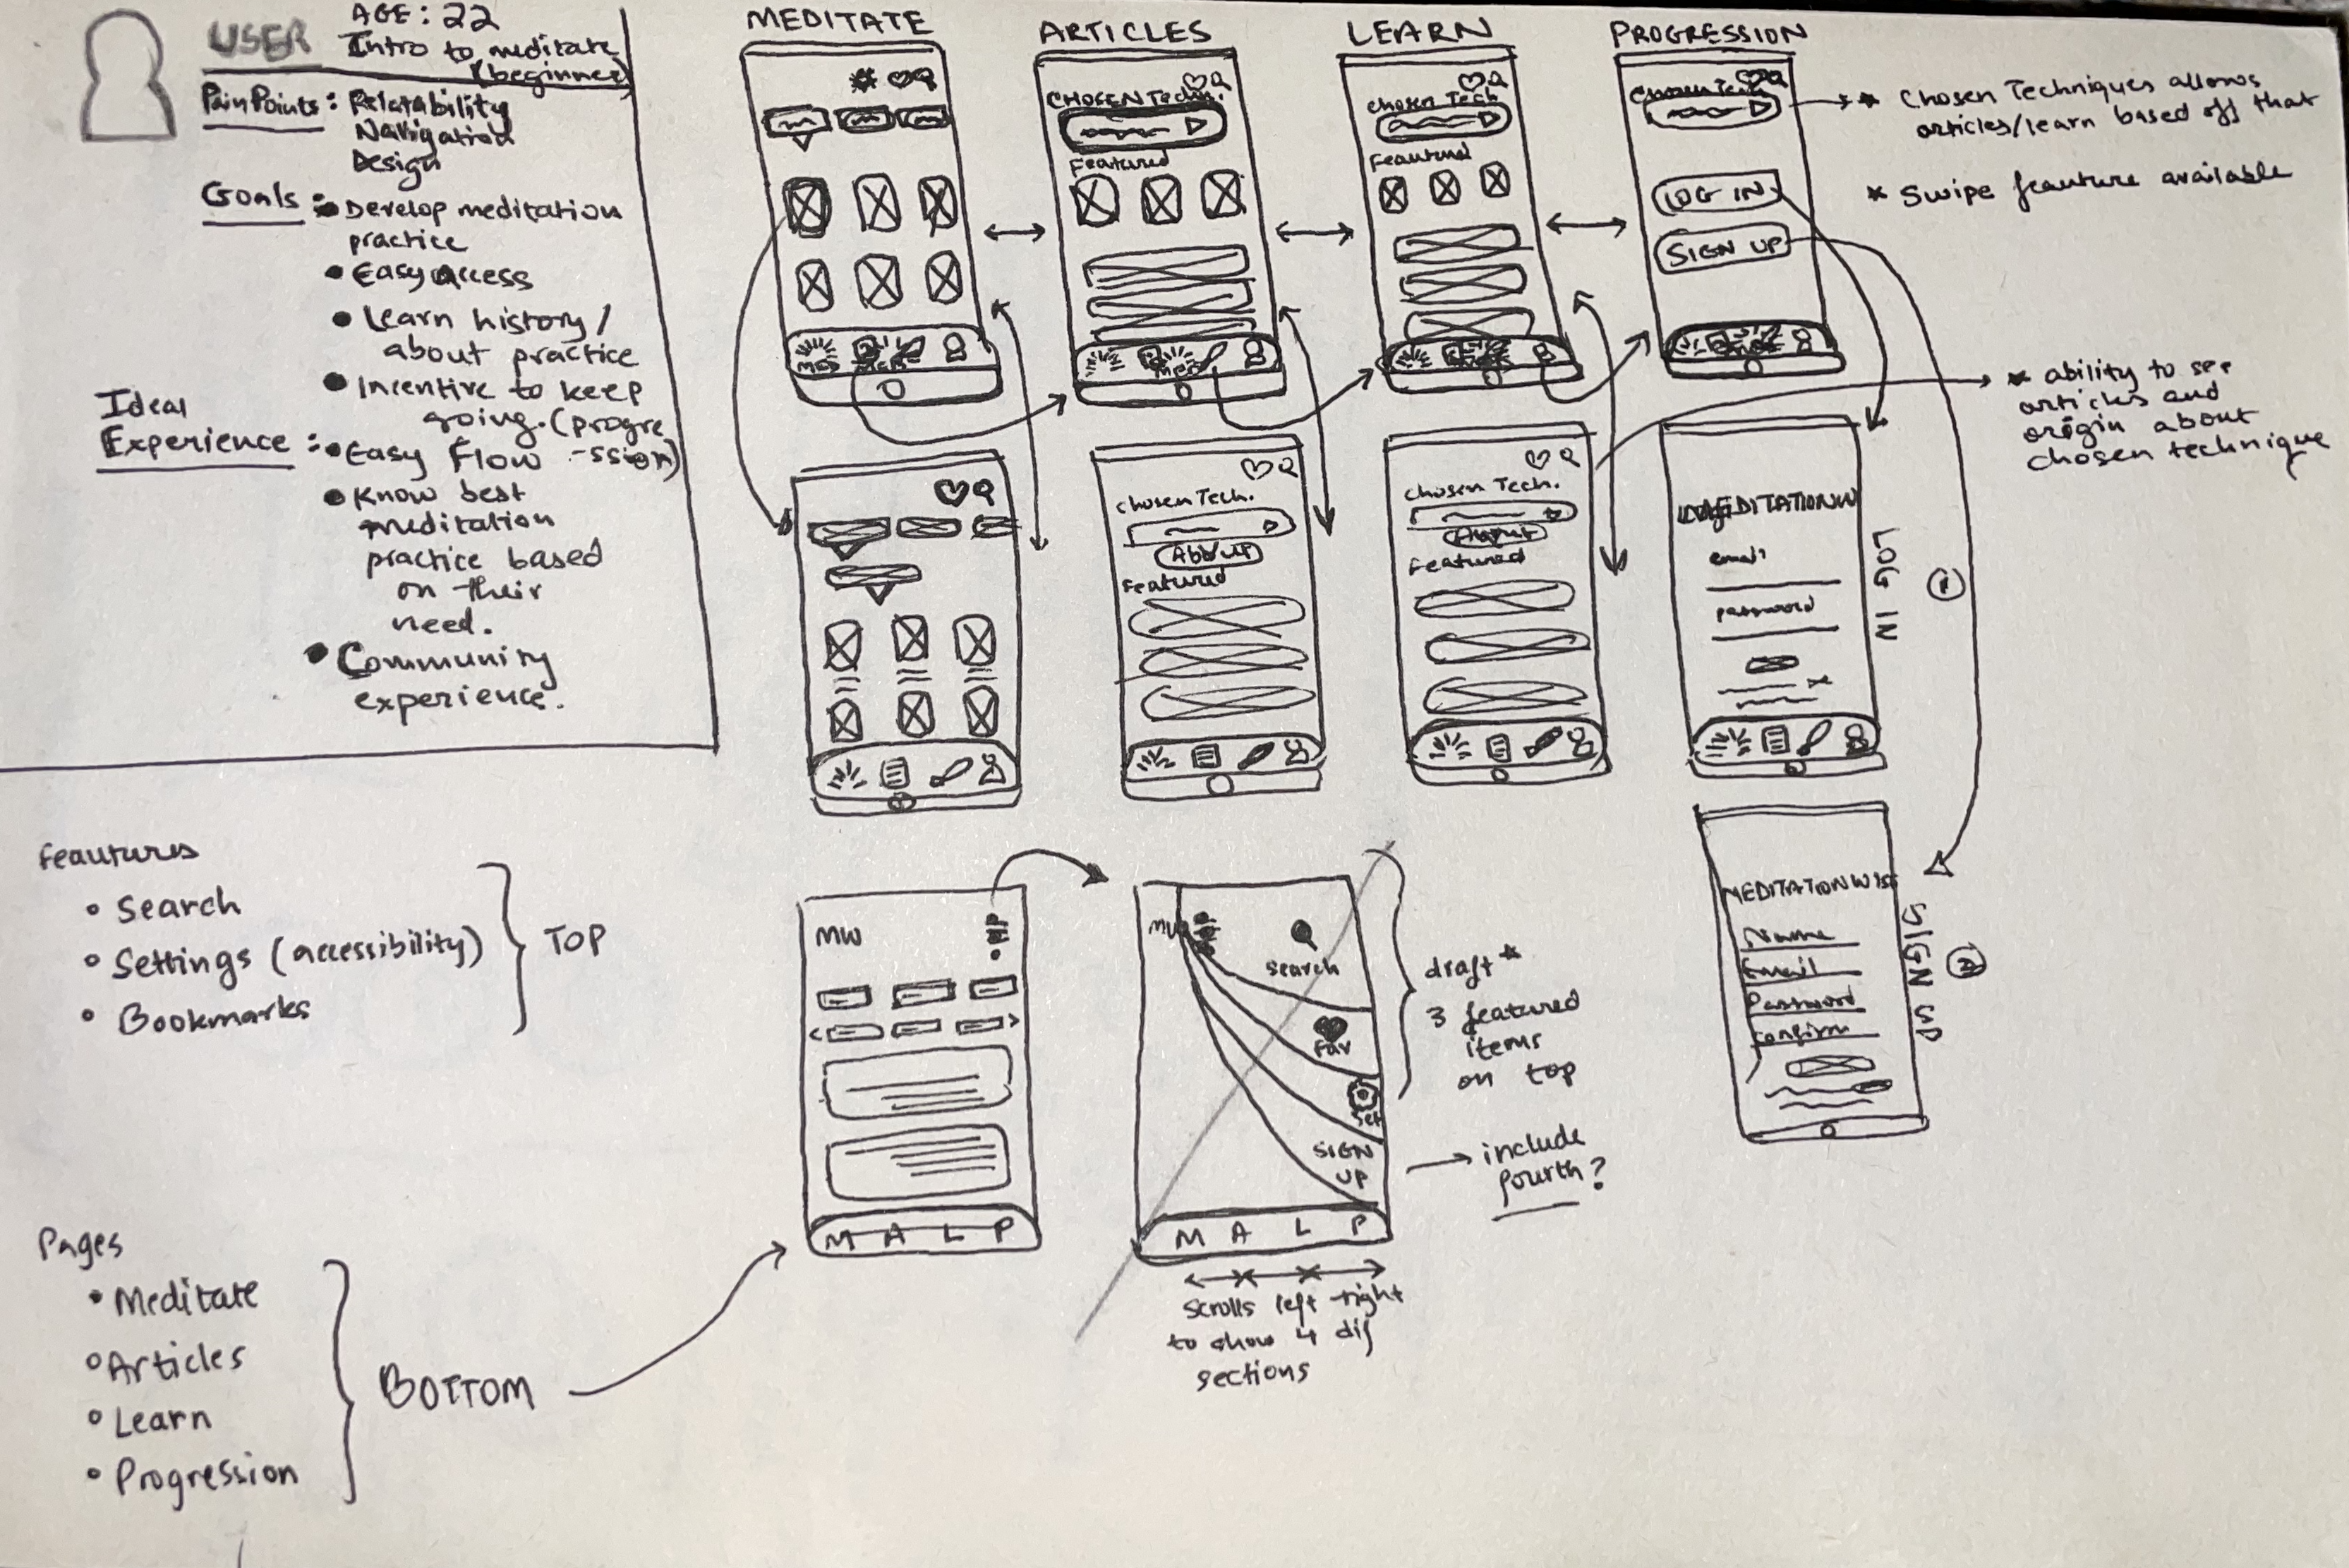 USER
AGE: 22
Intro to meditate
(beginner)
Pain Points: Relatability
Navigation
Design
Goals:
Develop meditation
practice
Easy access
Learn history/
about practice
Incentive to keep
going. (progre
-ssion)
Ideal
Experience:
Easy Flow
Know best
meditation
practice based
on their
need.
Community
experience.
MEDITATE
ARTICLES
LEARN
PROGRESSION
MED
CHOSEN Techn.
Featured
Chosen Tech
Feautured
Chosen Tech
LOG IN
SIGN UP
* Chosen Techniques allows
articles/learn based off that
* Swipe feauture available
* ability to see
articles and
origin about
chosen technique
Chosen Tech.
About
Featured
Chosen Tech.
About
Featured
email
password
LOG IN
1
MEDITATIONWISE
Name
Email
Password
Confirm
SIGN UP
2
Feautures
Search
Settings (accessibility)
Bookmarks
TOP
MW
M A L P
MW
Search
Fav
Set
SIGN
UP
M A L P
draft*
3 featured
items
on top
include
fourth?
scrolls left right
to show 4 dif
sections
Pages
Meditate
Articles
Learn
Progression
BOTTOM